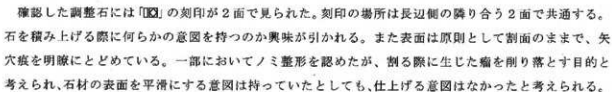 確認した調整石には「」の刻印が2面で見られた。刻印の場所は長辺側の隣り合う2面で共通する。
石を積み上げる際に何らかの意図を持つのか興味が引かれる。また表面は原則として割面のままで、矢
穴痕を明瞭にとどめている。一部においてノミ整形を認めたが、割る際に生じた瘤を削り落とす目的と
考えられ、石材の表面を平滑にする意図は持っていたとしても、仕上げる意図はなかったと考えられる。